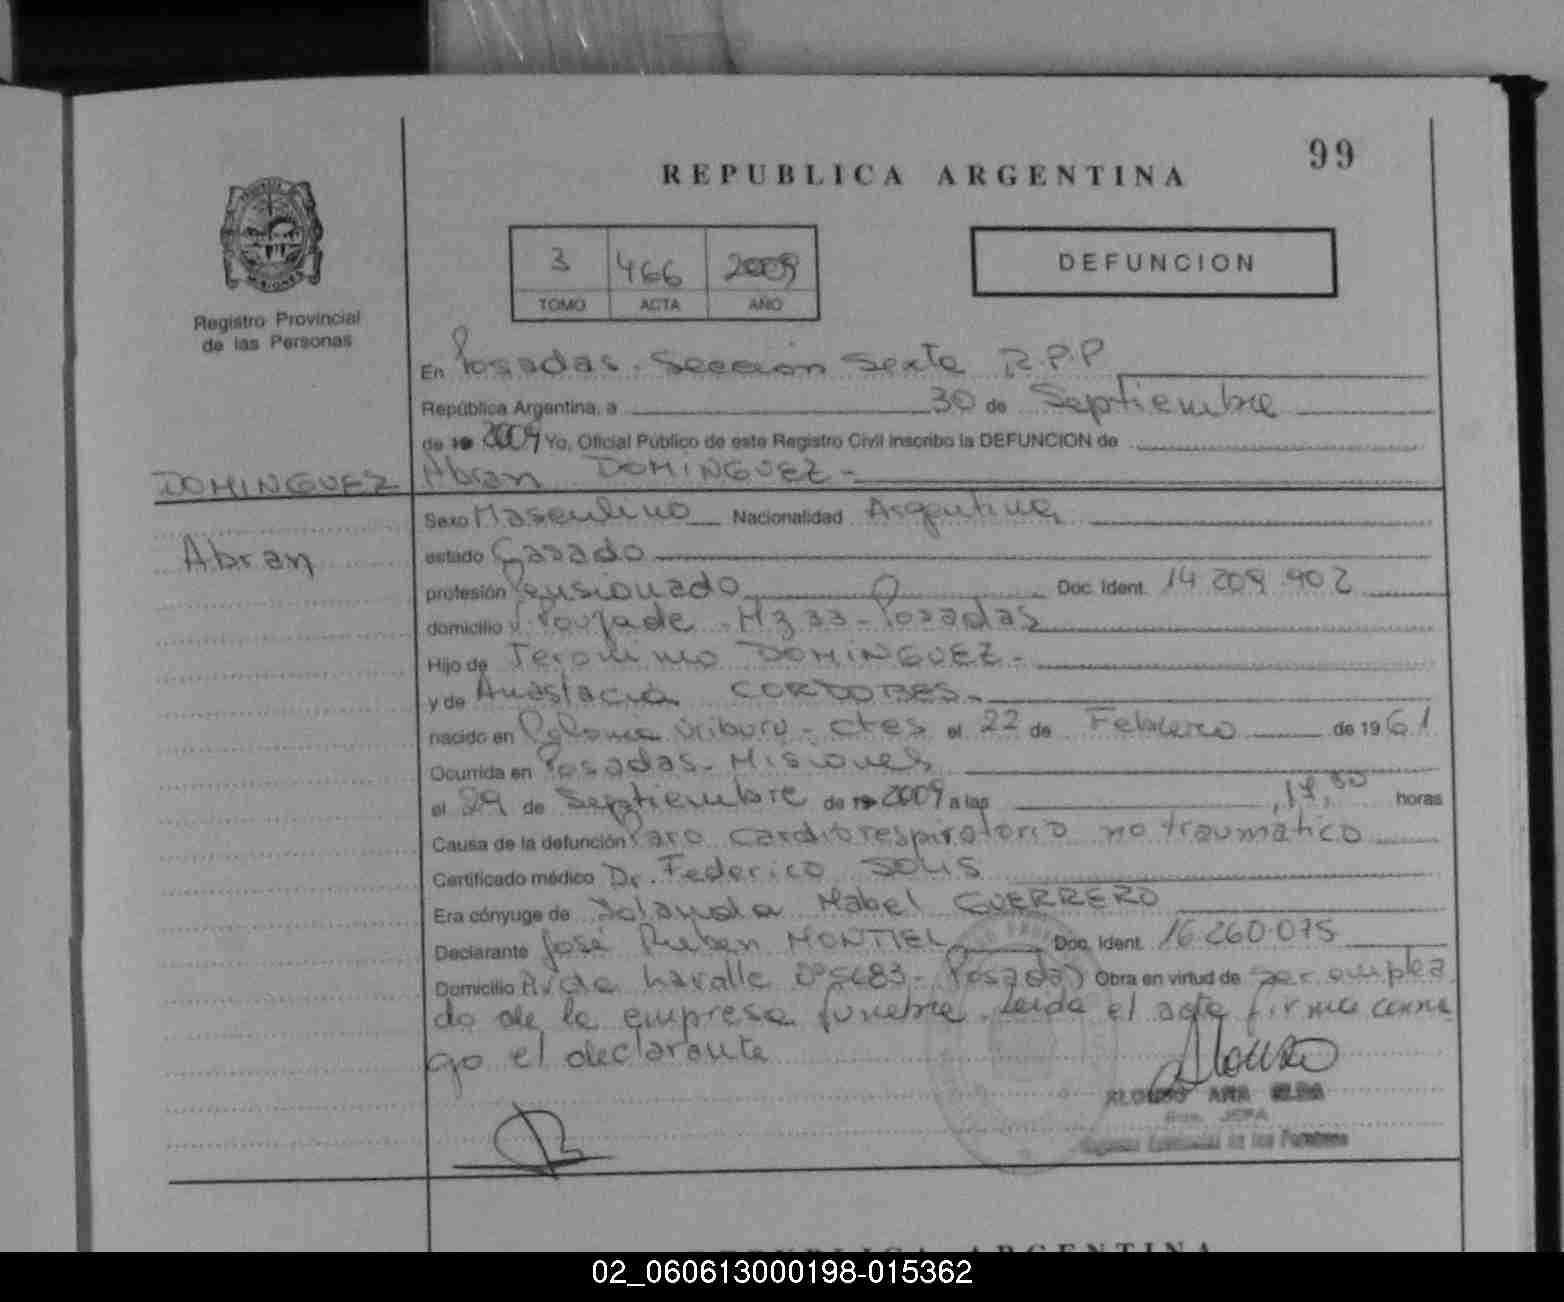 99
REPUBLICA ARGENTINA
3 466 2009
TOMO ACTA AÑO
DEFUNCION
MISIONES
Registro Provincial
de las Personas
En Posadas. Sección Sexta R.P.P
República Argentina, a 30 de Septiembre
de 19 2009 Yo, Oficial Público de este Registro Civil inscribo la DEFUNCION de
DOMINGUEZ Abran DOMINGUEZ -
Sexo Masculino Nacionalidad Argentina
Abran estado Casado
profesión Pensionado Doc. Ident. 14.209.902
domicilio Poujade - Mz 33 - Posadas
Hijo de Jeronimo DOMINGUEZ -
y de Anastacia CORDOBES -
nacido en Colonia Uriburu - Ctes el 22 de Febrero de 1961
Ocurrida en Posadas - Misiones
el 29 de Septiembre de 19 2009 a las horas
Causa de la defunción Paro cardiorespiratorio no traumático
Certificado médico Dr. Federico SOLIS
Era cónyuge de Yolanda Mabel GUERRERO
Declarante José Ruben MONTIEL Doc. Ident. 16.260.075
Domicilio Avda Lavalle Nº 5683 - Posadas Obra en virtud de ser emplea
do de la empresa funebre. Leida el acta firma conmi
go el declarante
ALONSO ANA ELBA
JEFA
Registro Provincial de las Personas
REPUBLICA ARGENTINA
02_060613000198-015362